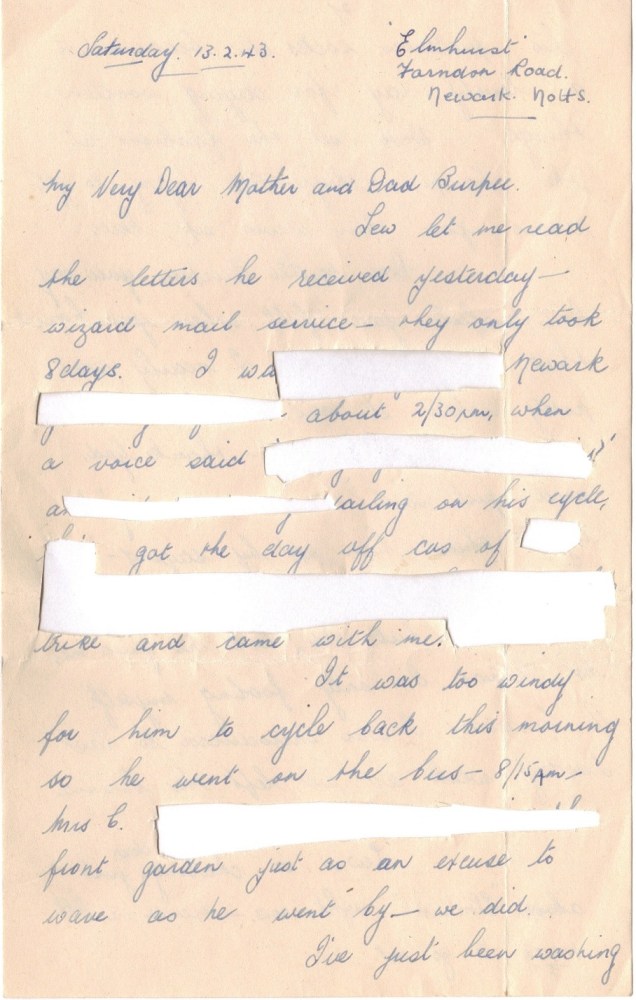 Saturday. 13.2.43.
'Elmhurst'
Farndon Road.
Newark. Notts.
My Very Dear Mother and Dad Burpee.
Lew let me read
the letters he received yesterday—
wizard mail service— they only took
8days. I wa Newark
about 2/30pm, when
a voice said
on his cycle,
got the day off cos of
trike and came with me.
It was too windy
for him to cycle back this morning
so he went on the bus— 8/15am—
Mrs C.
front garden just as an excuse to
wave as he went by— we did.
I've just been washing